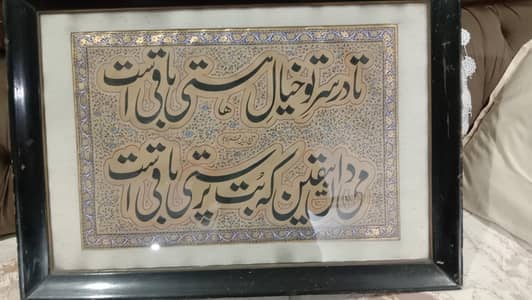 تا در سر تو خیال هستی باقی است
می دان یقین که بت پرستی باقی است